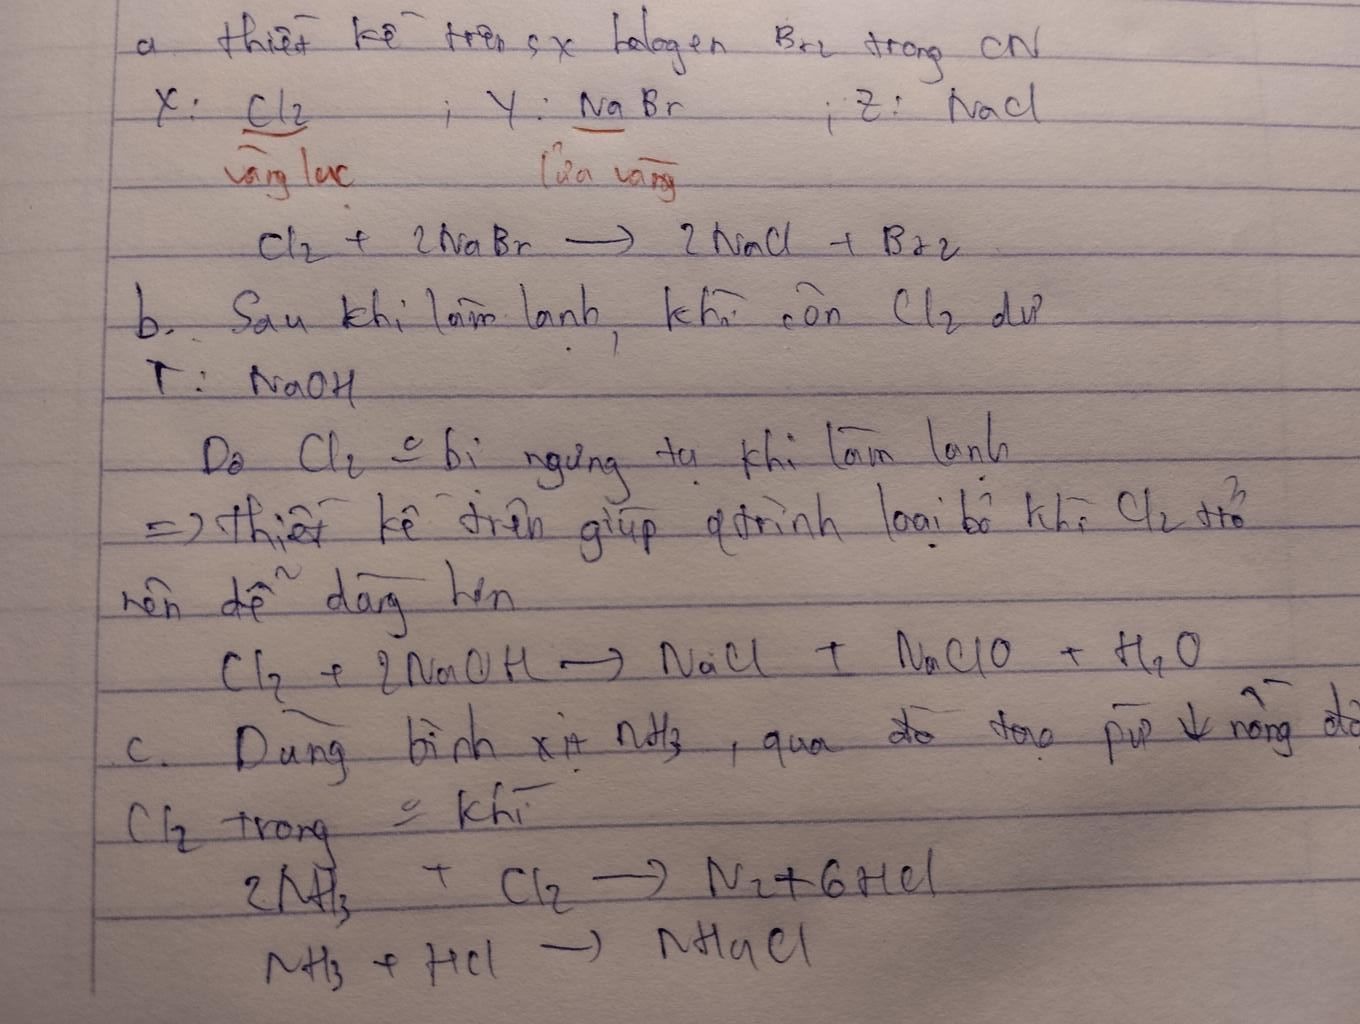 a thiết kế trên sx halogen Br2 trong CN
X: Cl2 ; Y: NaBr ; Z: NaCl
vàng lục lửa vàng
Cl2 + 2NaBr → 2NaCl + Br2
b. Sau khi làm lạnh, khí còn Cl2 dư
T: NaOH
Do Cl2 bị ngưng tụ khi làm lạnh
=> thiết kế trên giúp qtrình loại bỏ khí Cl2 trở
nên dễ dàng hơn
Cl2 + 2NaOH → NaCl + NaClO + H2O
c. Dùng bình xịt NH3, qua đó tạo pứ ↓ nồng độ
Cl2 trong khí
2NH3 + Cl2 → N2 + 6HCl
NH3 + HCl → NH4Cl